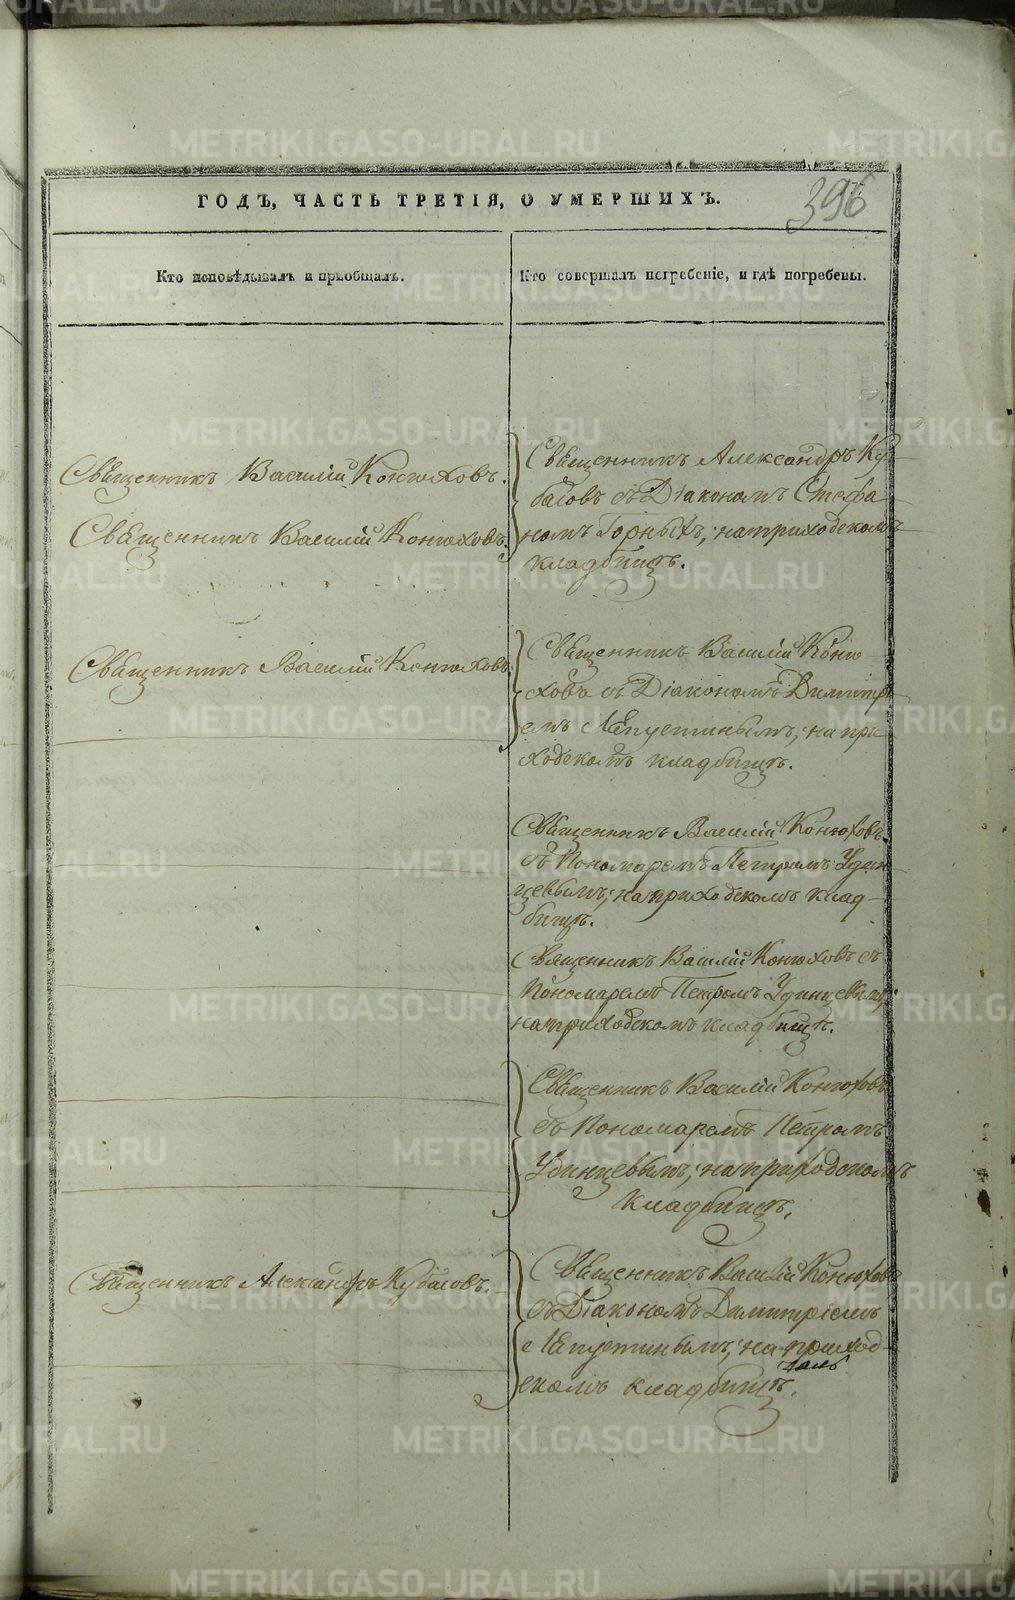 396
ГОДЪ, ЧАСТЬ ТРЕТІЯ, О УМЕРШИХЪ.
Кто исповѣдывалъ и пріобщалъ.
Кто совершалъ погребеніе, и гдѣ погребены.
Священникъ Василій Конюховъ.
Священникъ Василій Конюховъ.
Священникъ Александръ Ку-
басовъ съ Діакономъ Стефа
номъ Горныхъ; на приходскомъ
кладбищѣ.
Священникъ Василій Конюховъ.
Священникъ Василій Коню
ховъ съ Діакономъ Димитрі
емъ Лепустинымъ; на при
ходскомъ кладбищѣ.
Священникъ Василій Конюховъ
съ Пономаремъ Петромъ Удин
цевымъ; на приходскомъ клад-
бищѣ.
Священникъ Василій Конюховъ съ
Пономаремъ Петромъ Удинцевымъ;
на приходскомъ кладбищѣ.
Священникъ Василій Конюховъ
съ Пономаремъ Петромъ
Удинцевымъ; на приходскомъ
кладбищѣ.
Священникъ Александръ Кубасовъ.
Священникъ Василій Конюховъ
съ Діакономъ Димитріемъ
Лепустинымъ; на приход-
скомъ кладбищѣ.
METRIKI.GASO-URAL.RU